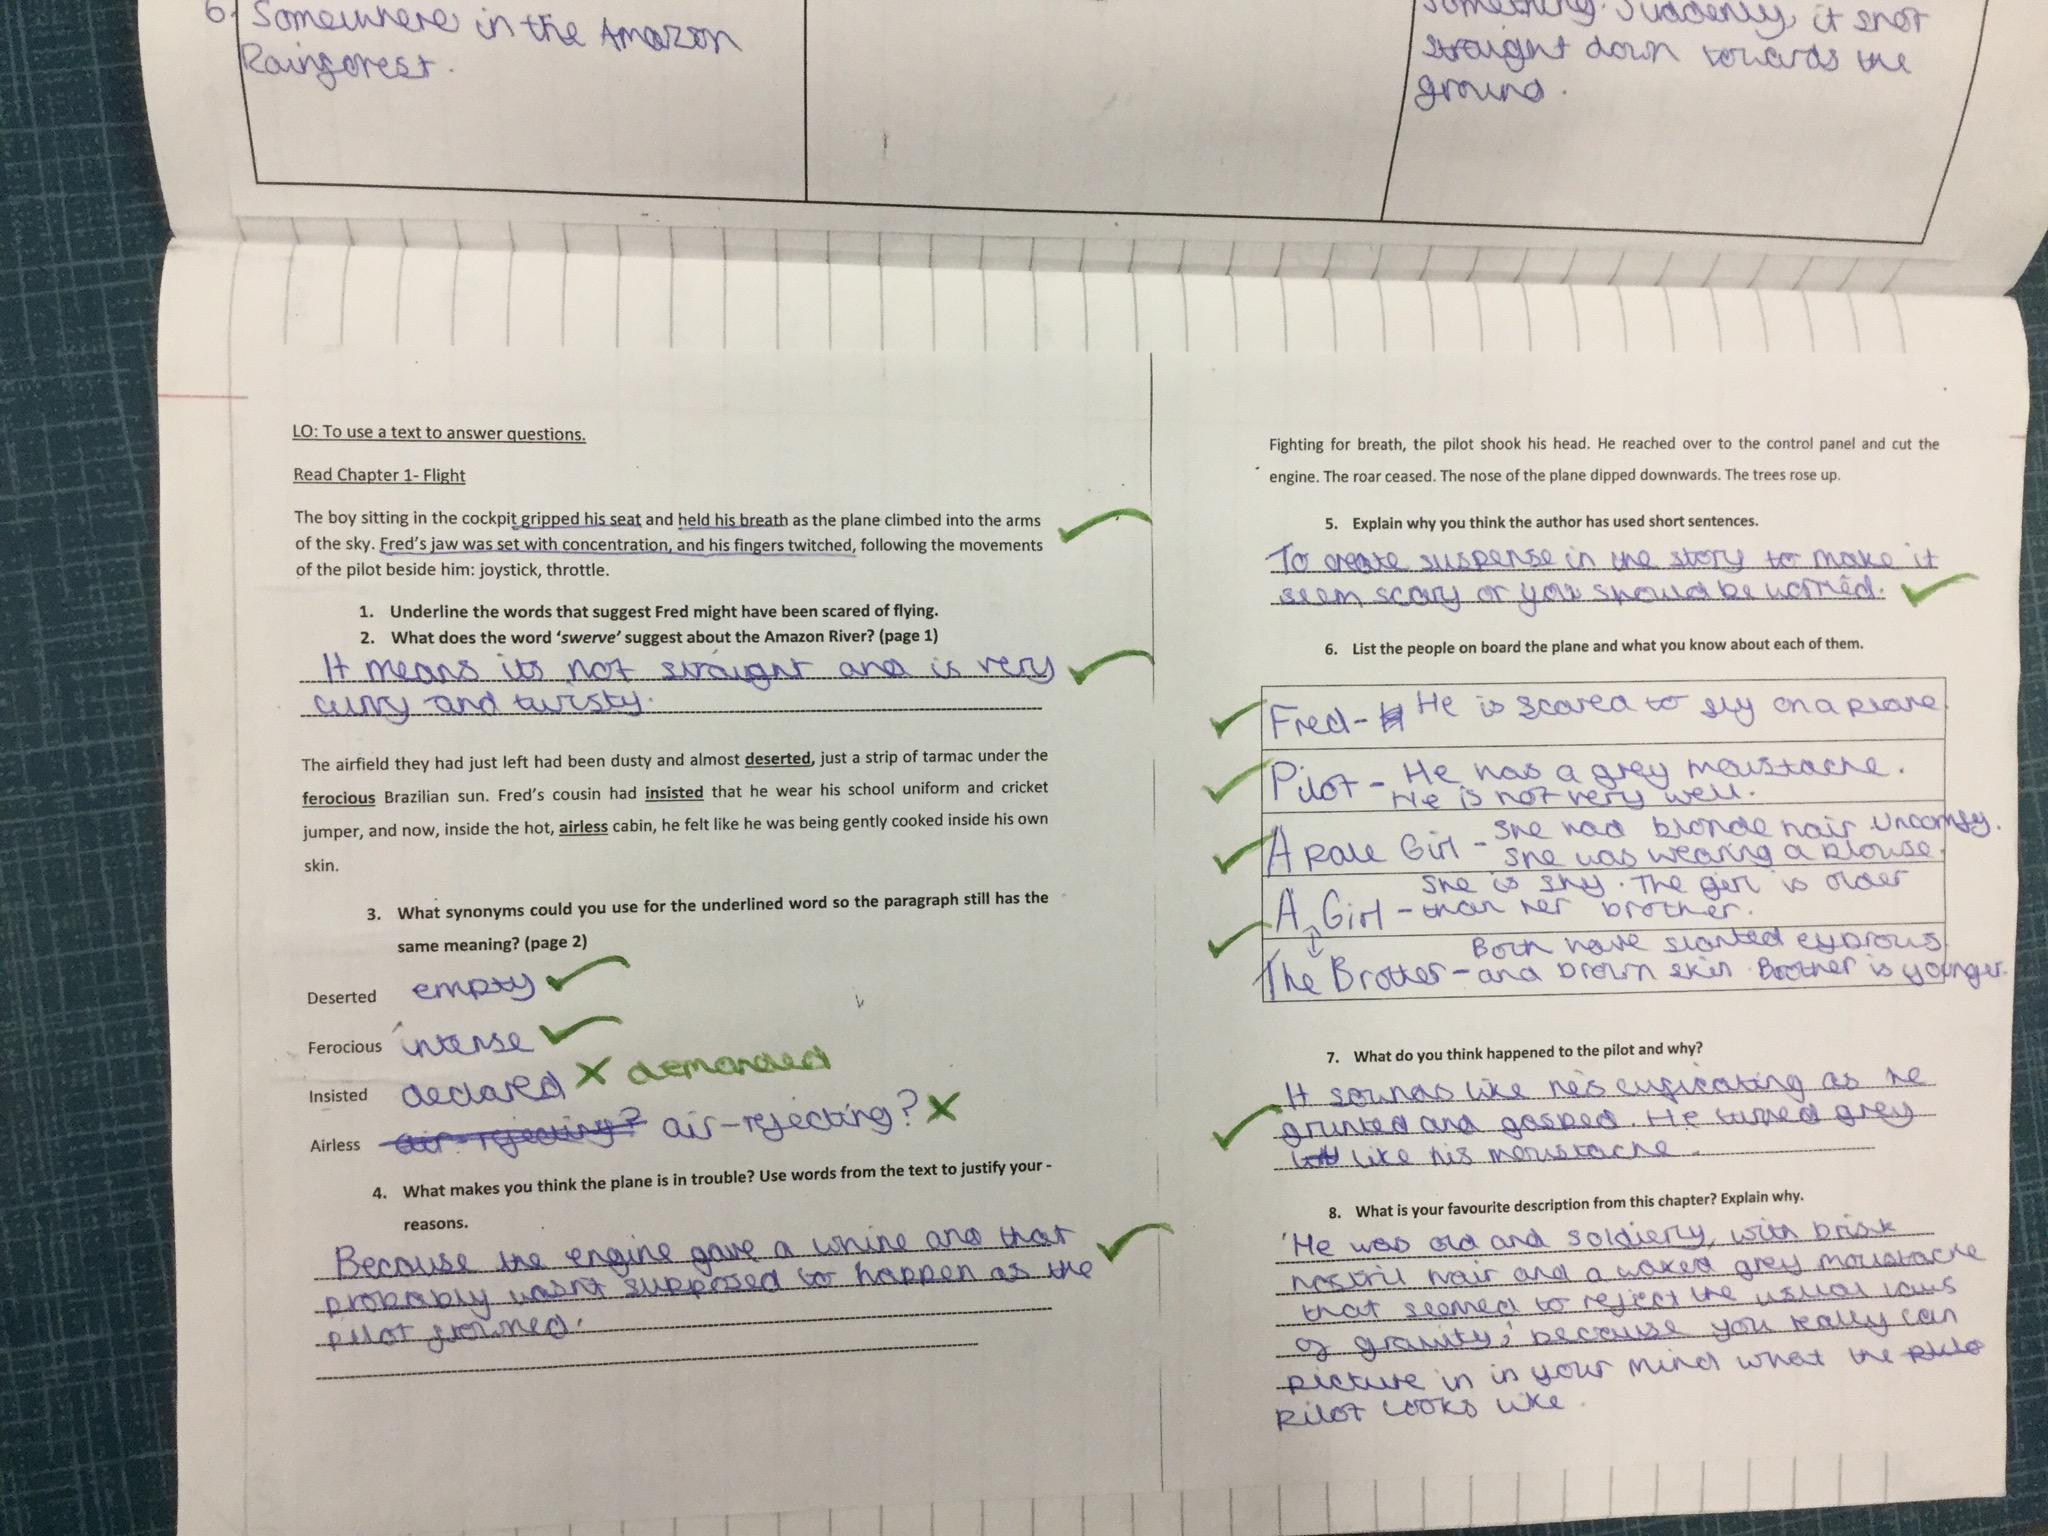 6. Somewhere in the Amazon
Rainforest.
something. Suddenly, it shot
straight down towards the
ground.
LO: To use a text to answer questions.
Read Chapter 1- Flight
The boy sitting in the cockpit gripped his seat and held his breath as the plane climbed into the arms
of the sky. Fred's jaw was set with concentration, and his fingers twitched, following the movements
of the pilot beside him: joystick, throttle.
1. Underline the words that suggest Fred might have been scared of flying.
2. What does the word 'swerve' suggest about the Amazon River? (page 1)
It means its not straight and is very
curvy and twisty.
The airfield they had just left had been dusty and almost deserted, just a strip of tarmac under the
ferocious Brazilian sun. Fred's cousin had insisted that he wear his school uniform and cricket
jumper, and now, inside the hot, airless cabin, he felt like he was being gently cooked inside his own
skin.
3. What synonyms could you use for the underlined word so the paragraph still has the
same meaning? (page 2)
Deserted empty
Ferocious intense
Insisted declared demanded
Airless air-rejecting? air-rejecting?
4. What makes you think the plane is in trouble? Use words from the text to justify your -
reasons.
Because the engine gave a whine and that
probably wasn't supposed to happen as the
pilot frowned.
Fighting for breath, the pilot shook his head. He reached over to the control panel and cut the
engine. The roar ceased. The nose of the plane dipped downwards. The trees rose up.
5. Explain why you think the author has used short sentences.
To create suspense in the story to make it
seem scary or you should be worried.
6. List the people on board the plane and what you know about each of them.
Fred- He is scared to fly on a plane
Pilot - He has a grey moustache.
He is not very well.
A pale Girl - she had blonde hair. Uncomfy.
she was wearing a blouse.
She is shy. The girl is older
A Girl - than her brother.
Both have slanted eybrows
The Brother - and brown skin. Brother is younger.
7. What do you think happened to the pilot and why?
It sounds like he's sufficating as he
grunted and gasped. He turned grey
like his moustache.
8. What is your favourite description from this chapter? Explain why.
'He was old and soldierly, with brisk
nostril hair and a waxed grey moustache
that seemed to reject the usual laws
of gravity,' because you really can
picture in in your mind what the
pilot looks like.